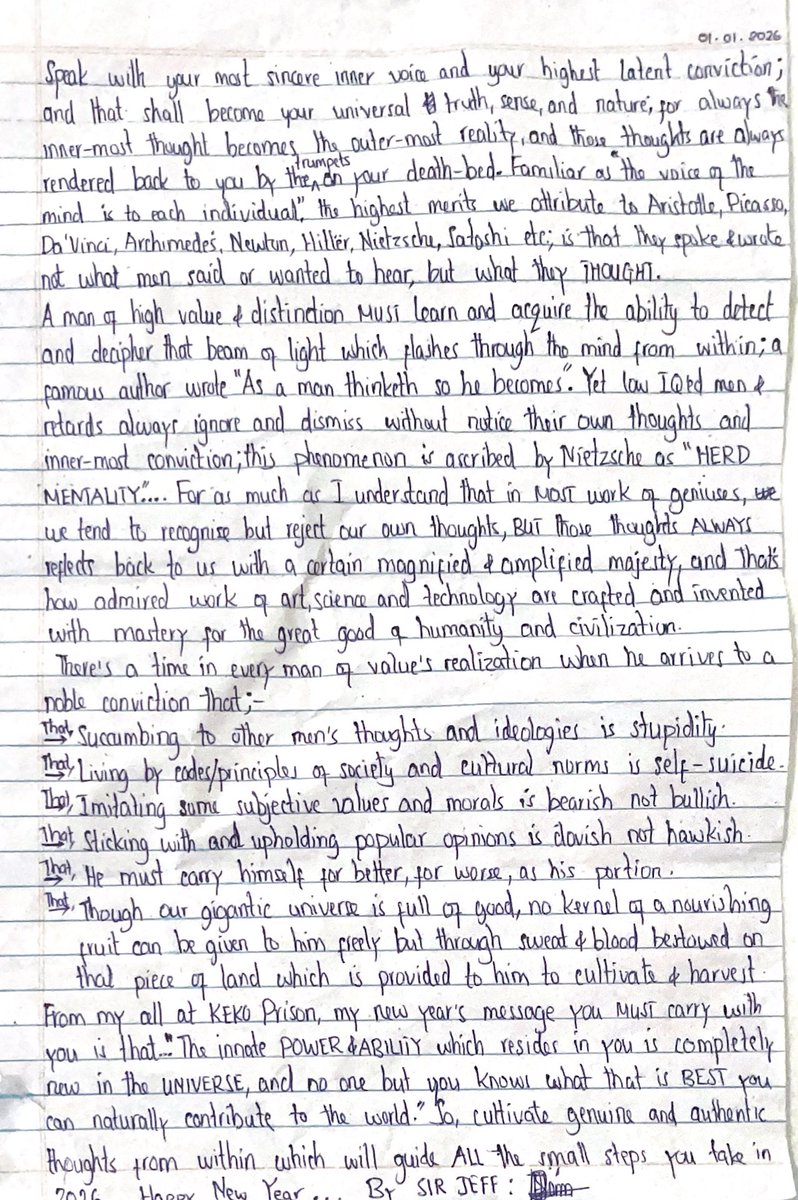 01.01.2026
Speak with your most sincere inner voice and your highest latent conviction;
and that shall become your universal truth, sense, and nature; for always the
inner-most thought becomes the outer-most reality, and those thoughts are always
rendered back to you by the trumpets on your death-bed. Familiar as "the voice of the
mind is to each individual", the highest merits we attribute to Aristotle, Picasso,
Da'Vinci, Archimedes, Newton, Hitler, Nietzsche, Satoshi etc; is that they spoke & wrote
not what men said or wanted to hear, but what they THOUGHT.
A man of high value & distinction MUST learn and acquire the ability to detect
and decipher that beam of light which flashes through the mind from within; a
famous author wrote "As a man thinketh so he becomes". Yet low IQ'ed men &
retards always ignore and dismiss without notice their own thoughts and
inner-most conviction; this phenomenon is ascribed by Nietzsche as "HERD
MENTALITY".... For as much as I understand that in MOST work of geniuses, we
we tend to recognise but reject our own thoughts, BUT those thoughts ALWAYS
reflects back to us with a certain magnified & amplified majesty, and thats
how admired work of art, science and technology are crafted and invented
with mastery for the great good of humanity and civilization.
There's a time in every man of value's realization when he arrives to a
noble conviction that;-
That, → Succumbing to other men's thoughts and ideologies is stupidity.
That, → Living by codes/principles of society and cultural norms is self-suicide.
That, → Imitating some subjective values and morals is bearish not bullish.
That, → Sticking with and upholding popular opinions is dovish not hawkish.
That, → He must carry himself for better, for worse, as his portion.
That, → Though our gigantic universe is full of good, no kernel of a nourishing
fruit can be given to him freely but through sweat & blood bestowed on
that piece of land which is provided to him to cultivate & harvest.
From my all at KEKO Prison, my new year's message you MUST carry with
you is that..."The innate POWER & ABILITY which resides in you is completely
new in the UNIVERSE, and no one but you knows what that is BEST you
can naturally contribute to the world." So, cultivate genuine and authentic
thoughts from within which will guide ALL the small steps you take in
2026 Happy New Year... By SIR JEFF: